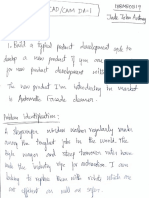 CAD/CAM DA-1
18BME0019
Jude John Antony
1. Build a typical product development cycle to
develop a new product if you are
for new product development
The new product I'm introducing to market
is Automatic Fireade
Problem Identification:
A
window washer regularly ranks
among the toughest jobs in the world. The
high wages and steep turnover rates have
the industry ripe for automation. I am
looking to replace them with robots which are
as efficient as well as safer.